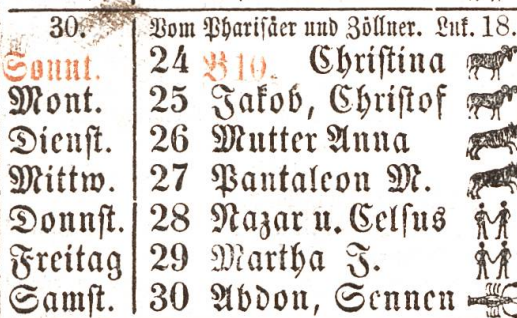 30. Vom Pharisäer und Zöllner. Luk. 18.
Sonnt. 24 B 10. Christina
Mont. 25 Jakob, Christof
Dienst. 26 Mutter Anna
Mittw. 27 Pantaleon M.
Donnst. 28 Nazar u. Celsus
Freitag 29 Martha J.
Samst. 30 Abdon, Sennen